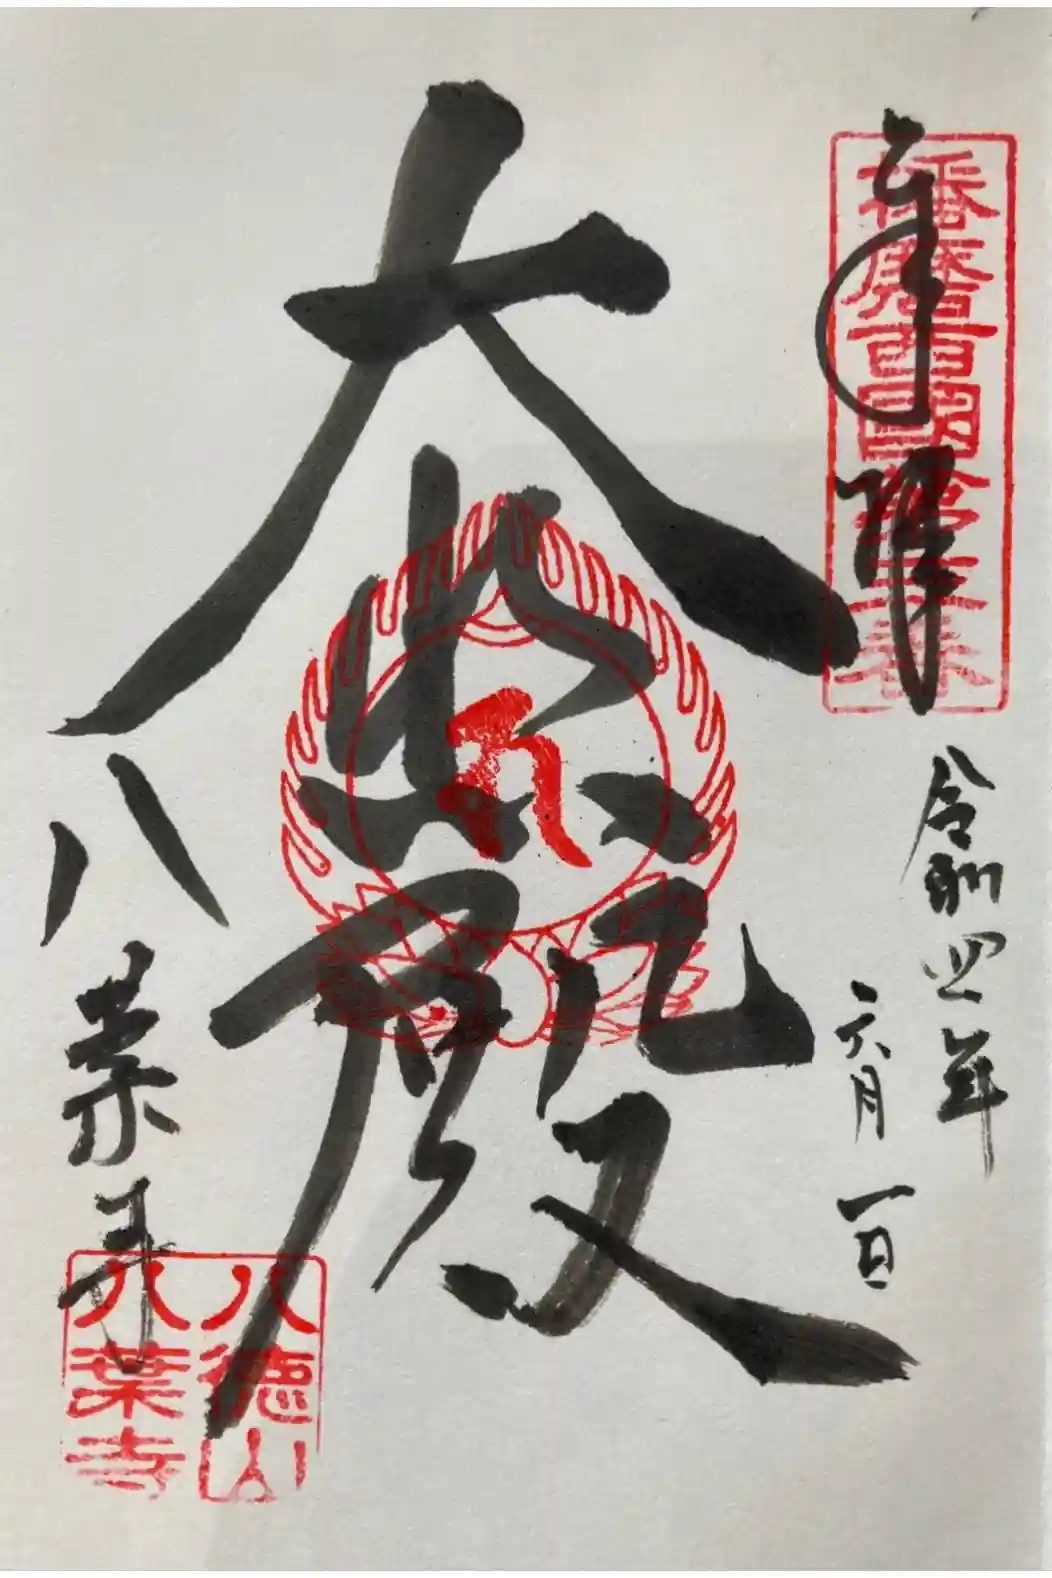 奉拝
播磨西国第三番
令和四年
六月一日
大悲殿
八葉寺
八徳山
八葉寺